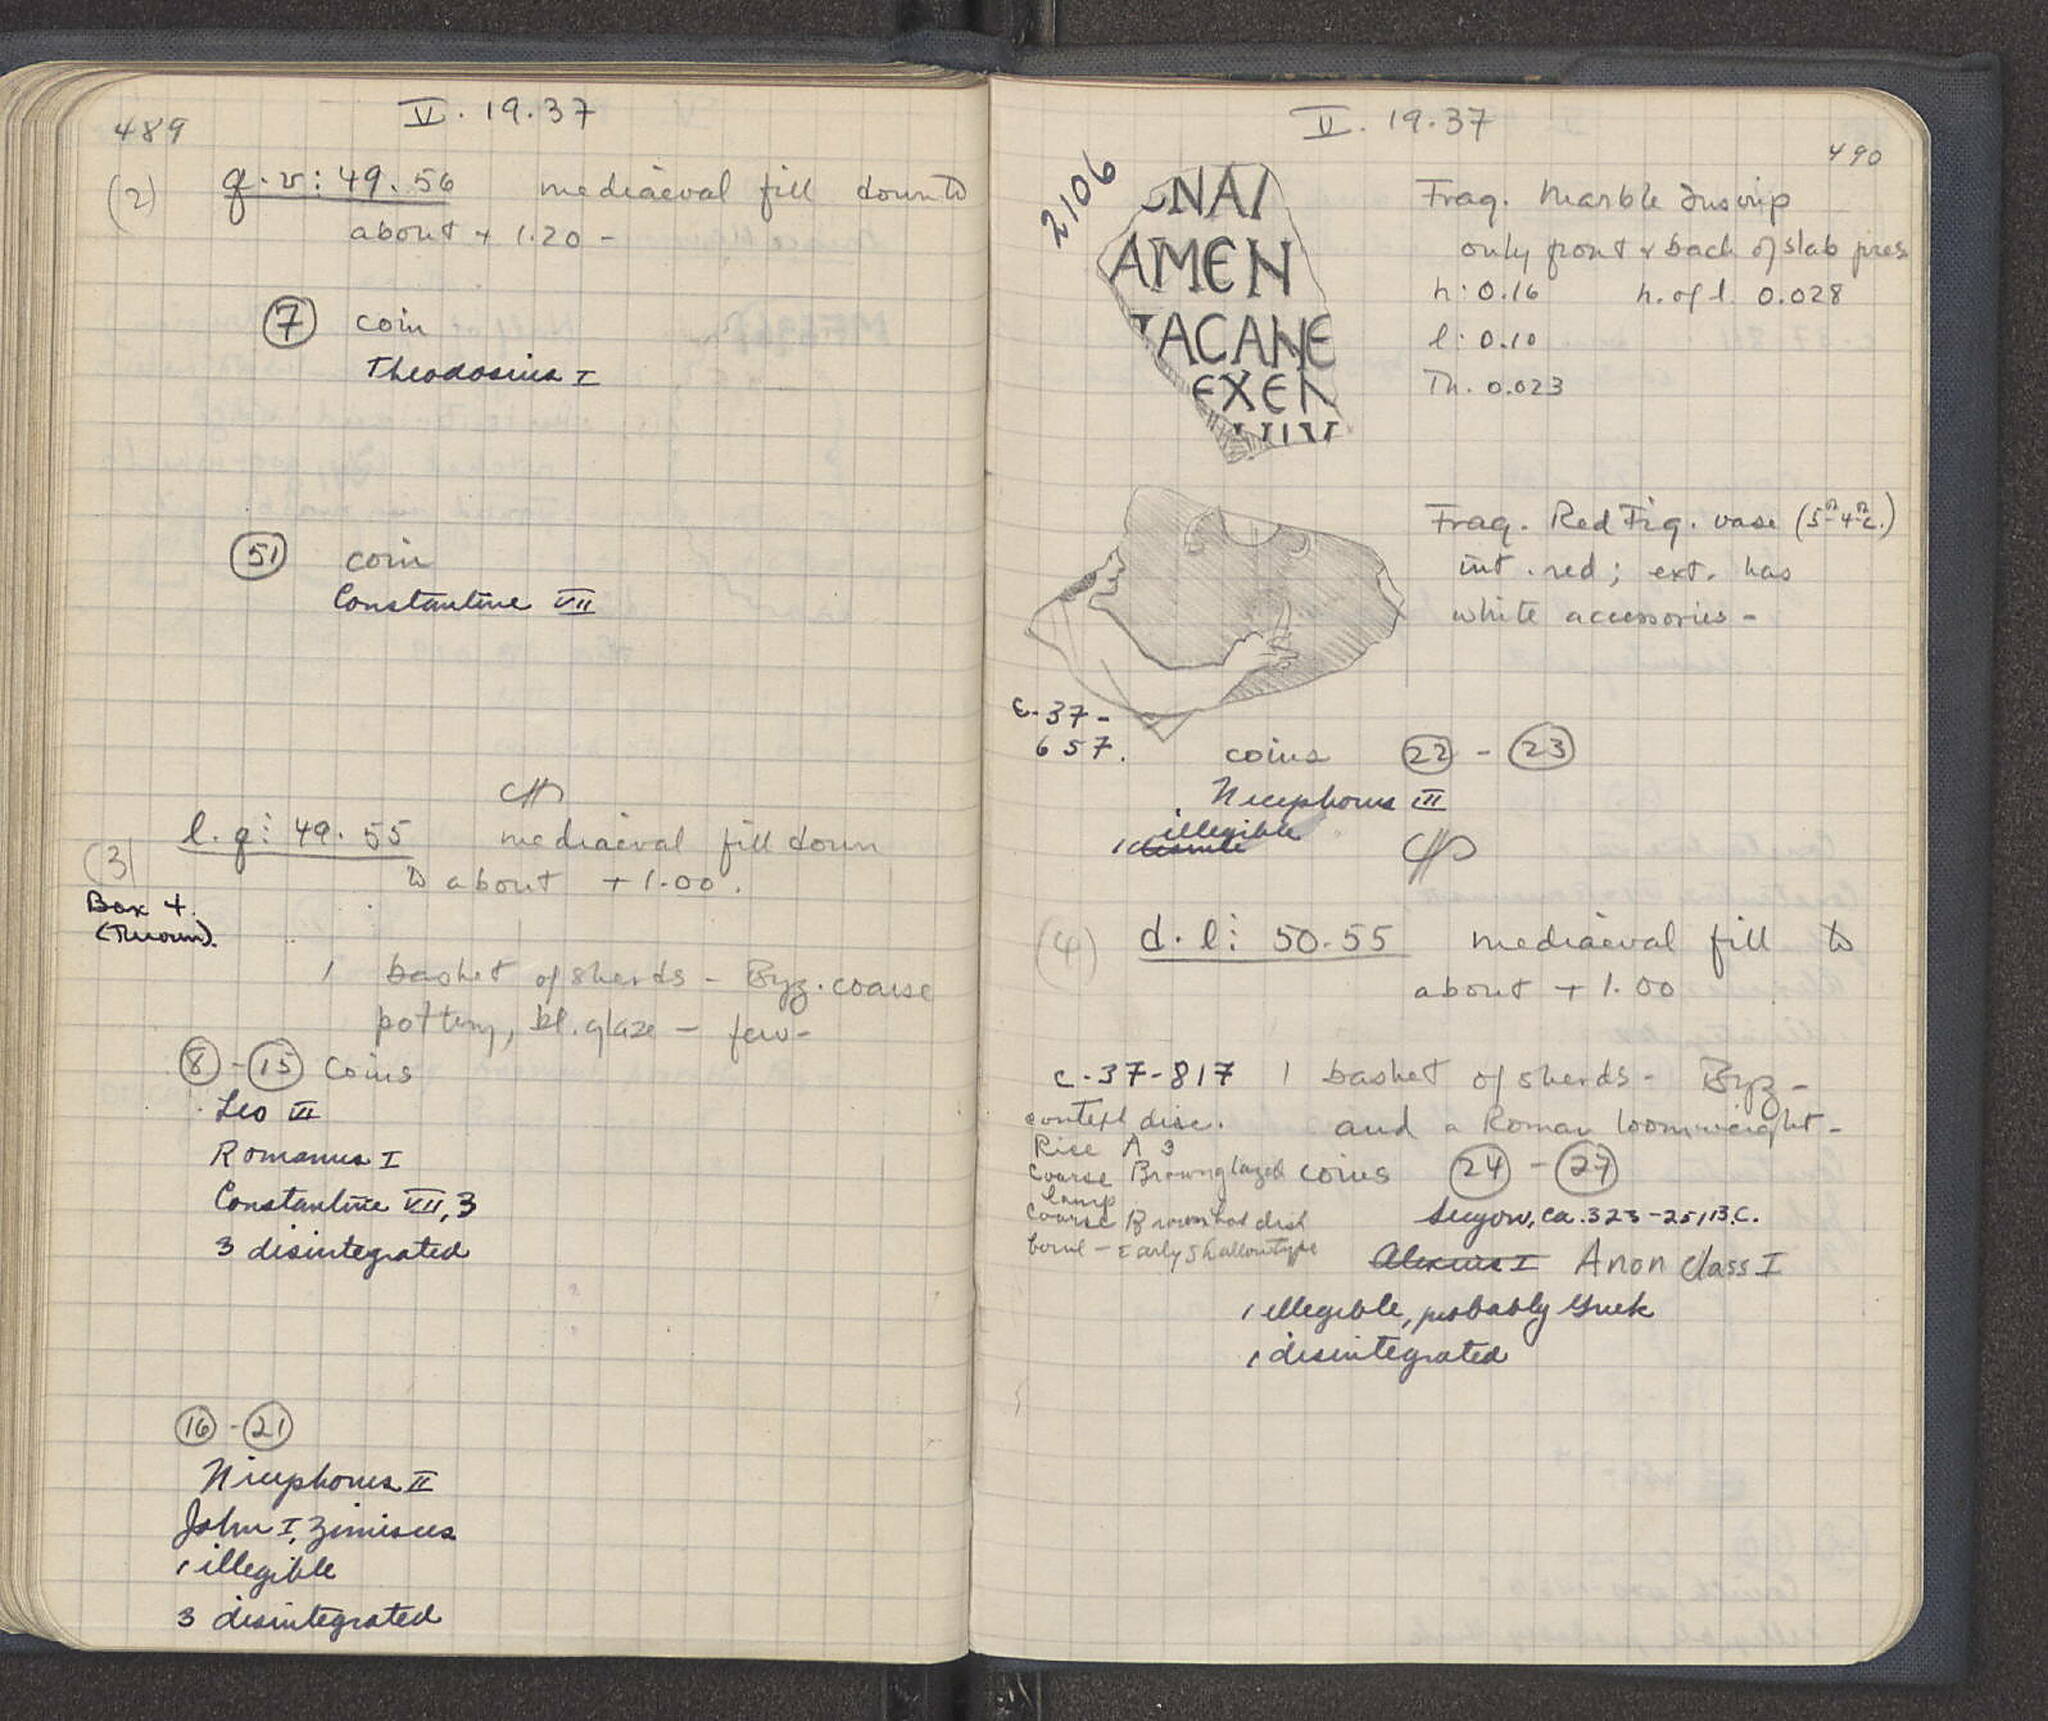 489
V. 19.37
(2) q.v: 49.56 mediaeval fill down to
about + 1.20 -
7 coin
Theodosius I
51 coin
Constantine VII
(3) l.q: 49.55 mediaeval fill down
to about + 1.00.
Box 4.
(Thrown).
1 basket of sherds - Byz. coarse
pottery, bl. glaze - few -
8 - 15 coins
Leo VI
Romanus I
Constantine VII, 3
3 disintegrated
16 - 21
Nicephorus II
John I, Zimisces
1 illegible
3 disintegrated
V. 19.37
490
2106
NAI
AMEN
TACANE
EXEN
Frag. Marble Inscrip
only front & back of slab pres
h: 0.16 h. of l. 0.028
l: 0.10
Th. 0.023
Frag. Red Fig. vase (5th-4th c.)
int. red; ext. has
white accessories -
C-37-
657.
coins 22 - 23
Nicephorus III
1 illegible
(4) d.l: 50.55 mediaeval fill to
about + 1.00
C-37-817 1 basket of sherds - Byz -
context disc. and a Roman loomweight -
Rise A 3
Coarse Brown glazed lamp
coins 24 - 27
Coarse Brown hot dish
bowl - Early shallow type
Sicyon, ca. 323-251 B.C.
Alexius I Anon Class I
1 illegible, probably Greek
1 disintegrated